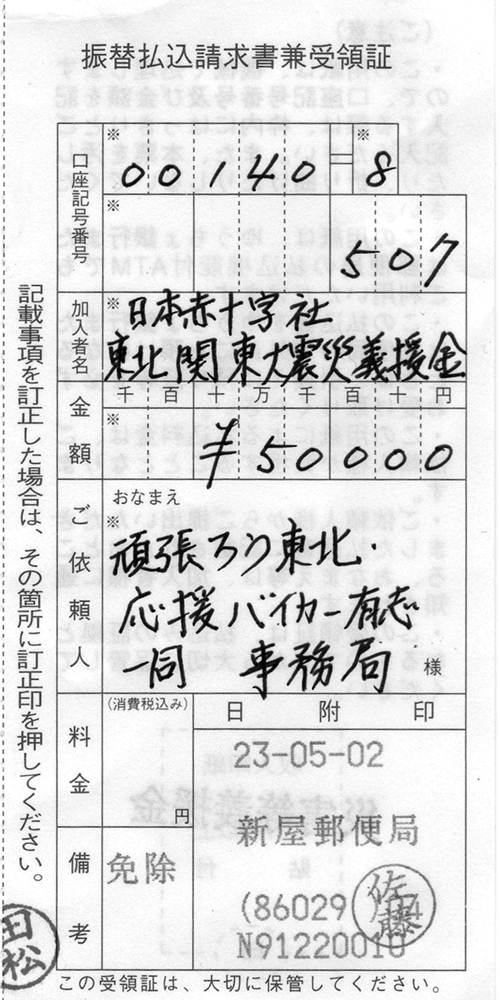 振替払込請求書兼受領証
口座記号番号
※ ※
00140=8
※
507
加入者名
※
日本赤十字社
東北関東大震災義援金
金額
千 百 十 万 千 百 十 円
¥50000
ご依頼人
おなまえ
※
頑張ろう東北・
応援バイカー有志
一同 事務局 様
料金
(消費税込み)
円
備考
免除
日附印
23-05-02
新屋郵便局
(86029
N91220010
佐藤
この受領証は、大切に保管してください。
記載事項を訂正した場合は、その箇所に訂正印を押してください。